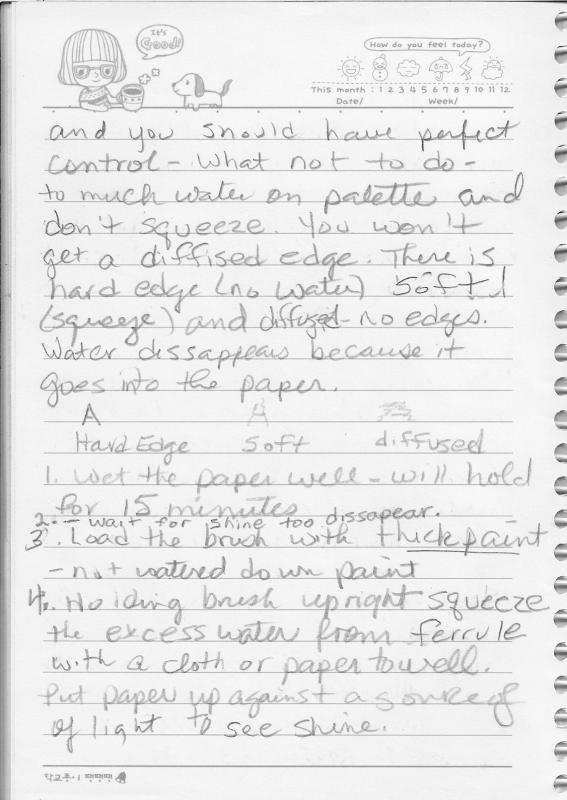 It's Good!
How do you feel today?
This month : 1 2 3 4 5 6 7 8 9 10 11 12
Date/ Week/
and you should have perfect
control - What not to do -
to much water on palette and
don't squeeze. You won't
get a diffised edge. There is
hard edge (no water) soft
(squeeze) and diffused - no edges.
Water dissappears because it
goes into the paper.
A A
Hard Edge soft diffused
1. Wet the paper well - will hold
for 15 minutes
2. - wait for shine too dissapear.
3. Load the brush with thick paint
- not watered down paint
4. Holding brush upright squeeze
the excess water from ferrule
with a cloth or paper towell.
Put paper up against a source of
of light to see shine.